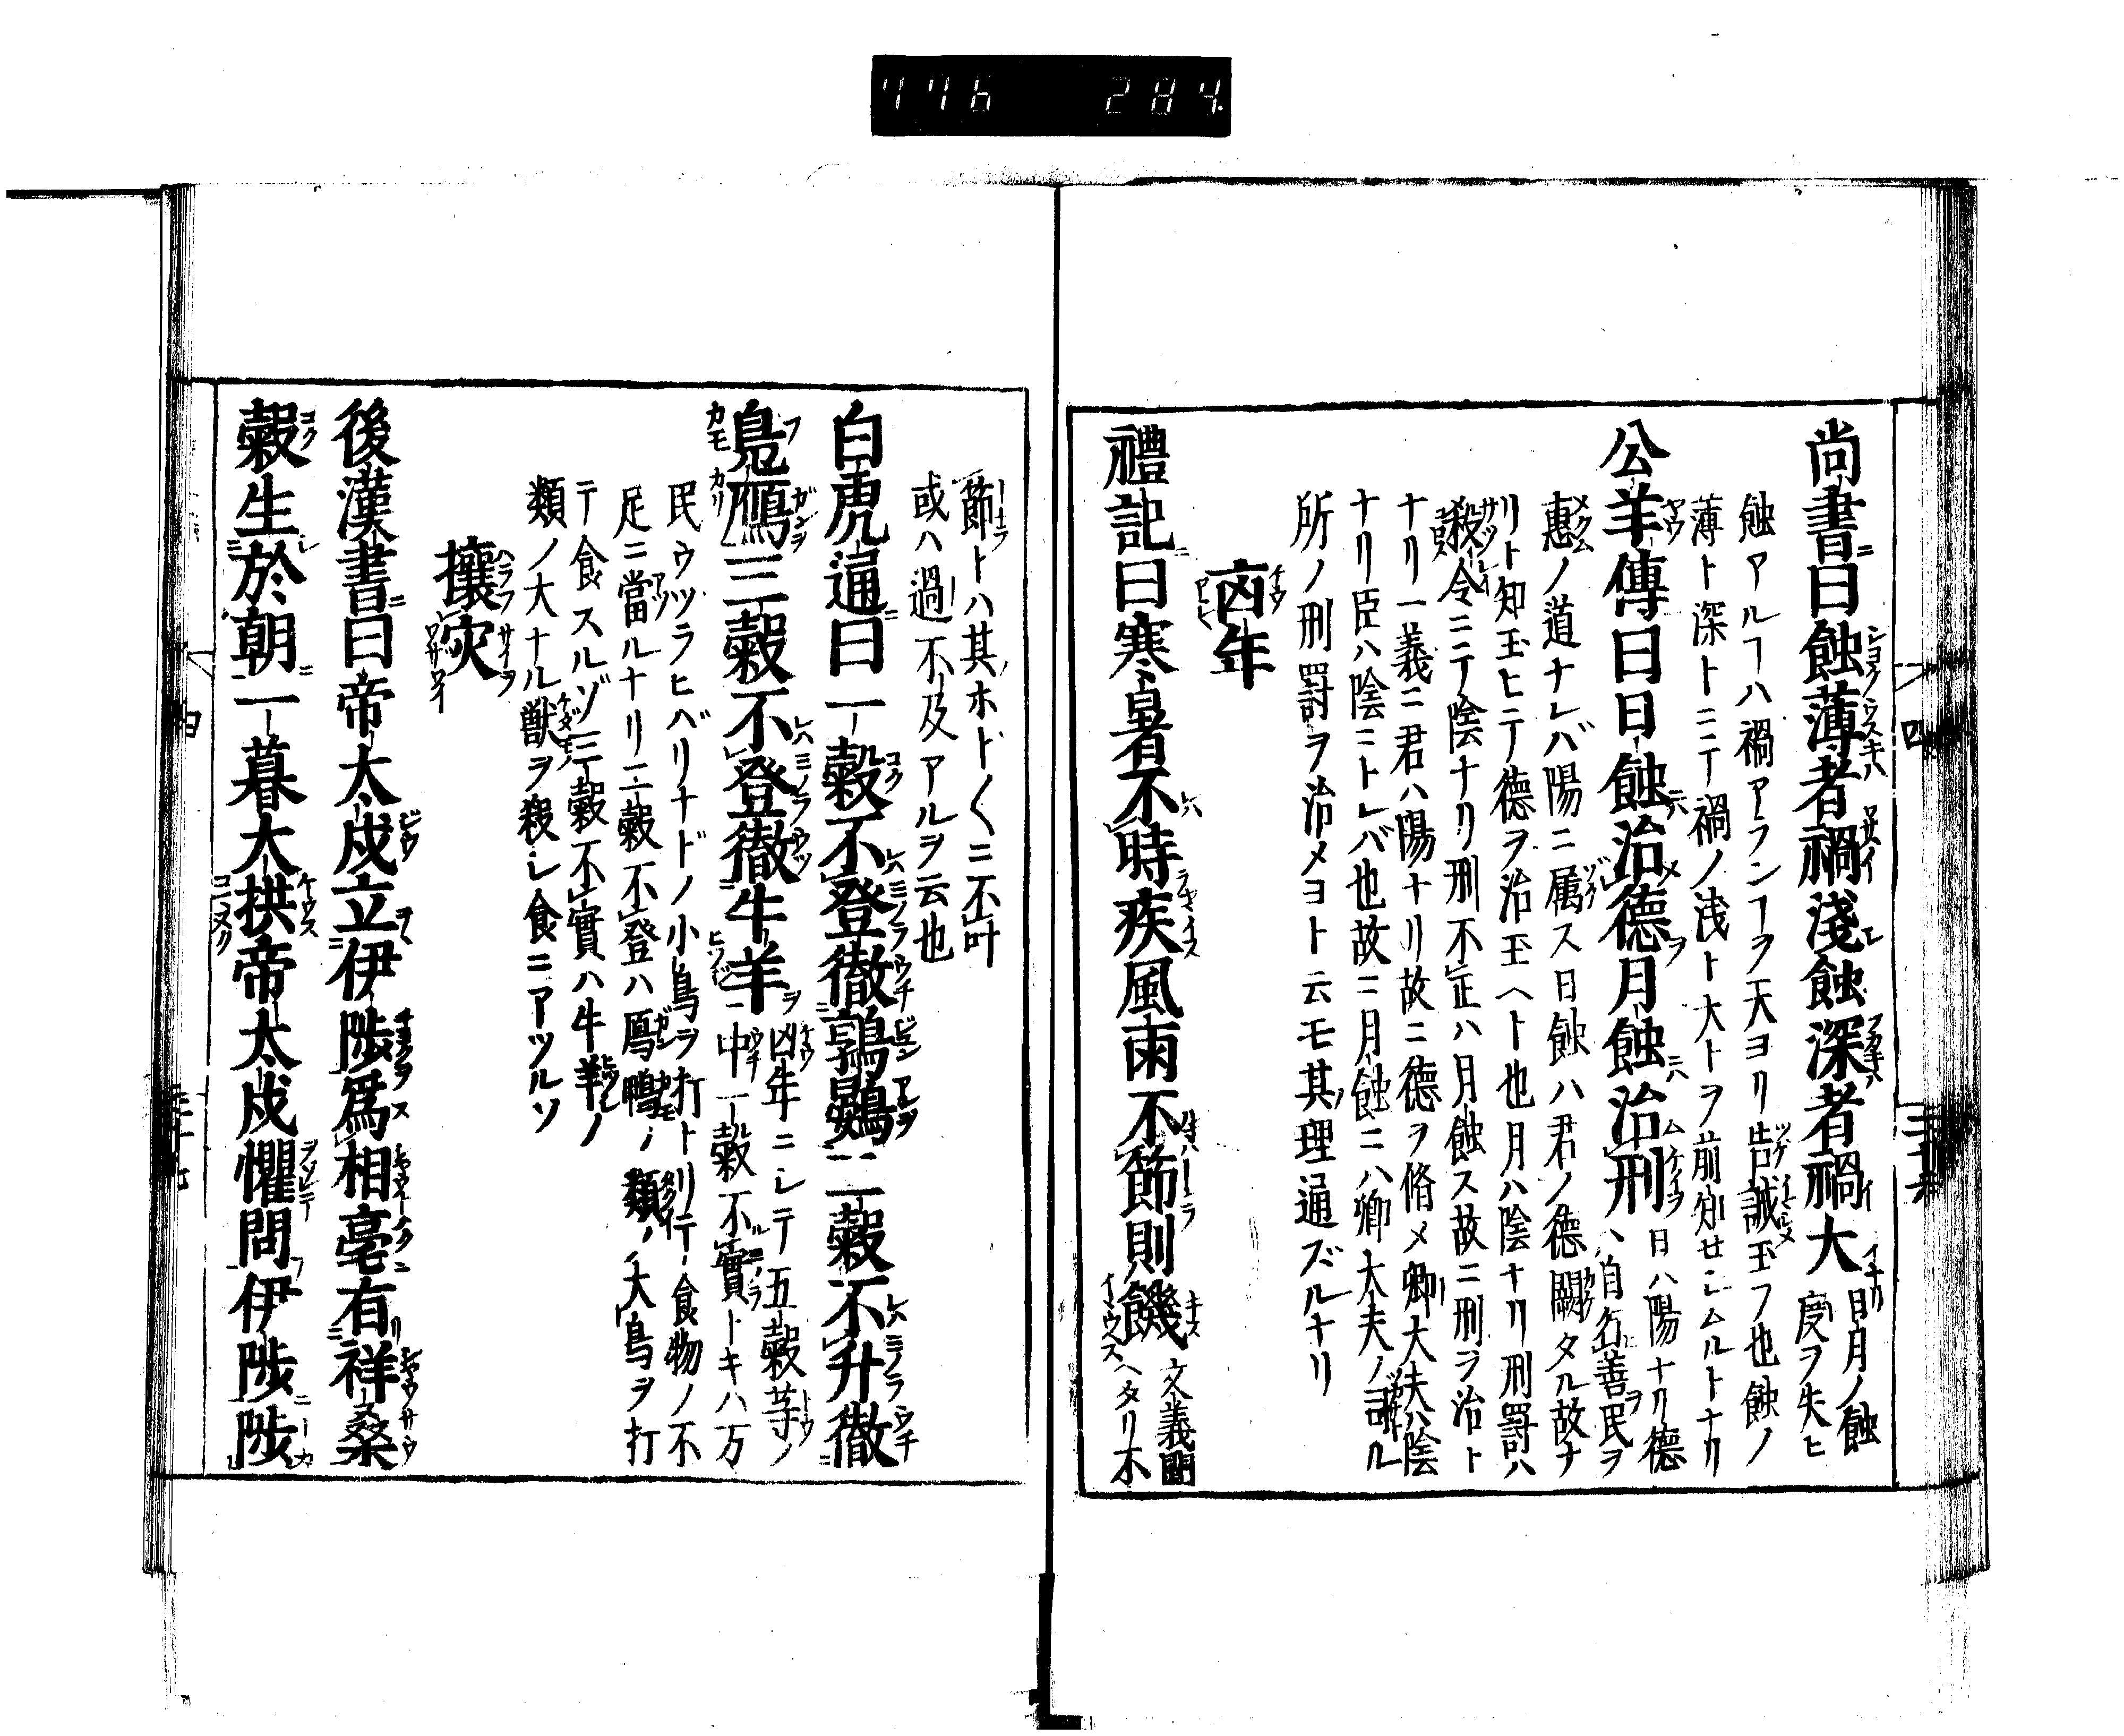 776 284
尚書曰蝕薄者禍淺蝕深者禍大 日月ノ蝕
度ヲ失ヒ
蝕アルヿハ禍アランヿヲ天ヨリ告誡玉フ也蝕ノ
薄ト深トニテ禍ノ浅ト大トヲ前知せシムルトナリ
公羊傳曰日蝕治德月蝕治刑 日ハ陽ナリ德
ハ自然善民ヲ
惠ノ道ナレバ陽ニ属ス日蝕ハ君ノ德闕タル故ナ
リト知玉ヒテ德ヲ治玉ヘト也月ハ陰ナリ刑罰ハ
殺令ニテ陰ナリ刑不正ハ月蝕ス故ニ刑ヲ治ト
ナリ一義ニ君ハ陽ナリ故ニ德ヲ脩メ卿大夫ハ陰
ナリ臣ハ陰ニトレバ也故ニ月蝕ニハ卿大夫ノ司ル
所ノ刑罰ヲ治メヨト云モ其理通ズルナリ
凶年
禮記曰寒暑不時疾風雨不節則饑 文義明
ヘタリ不
節トハ其ホド〱ニ不叶
或ハ過不及アルヲ云也
白虎通曰一穀不登徹鶉鷃二穀不升徹
鳧鴈三穀不登徹牛羊 凶年ニシテ五穀等ノ
中一穀不實トキハ万
民ウツラヒバリナドノ小鳥ヲ打ト刂行テ食物ノ不
足ニ當ルナリ二穀不登ハ鳫鴨ノ類ノ大鳥ヲ打
テ食スルゾ三穀不實ハ牛羊ノ
類ノ大ナル獣ヲ殺シ食ニアツルソ
攘災
後漢書曰帝太戊立伊陟爲相亳有祥桑
穀生於朝一暮大拱帝太戊懼問伊陟陟